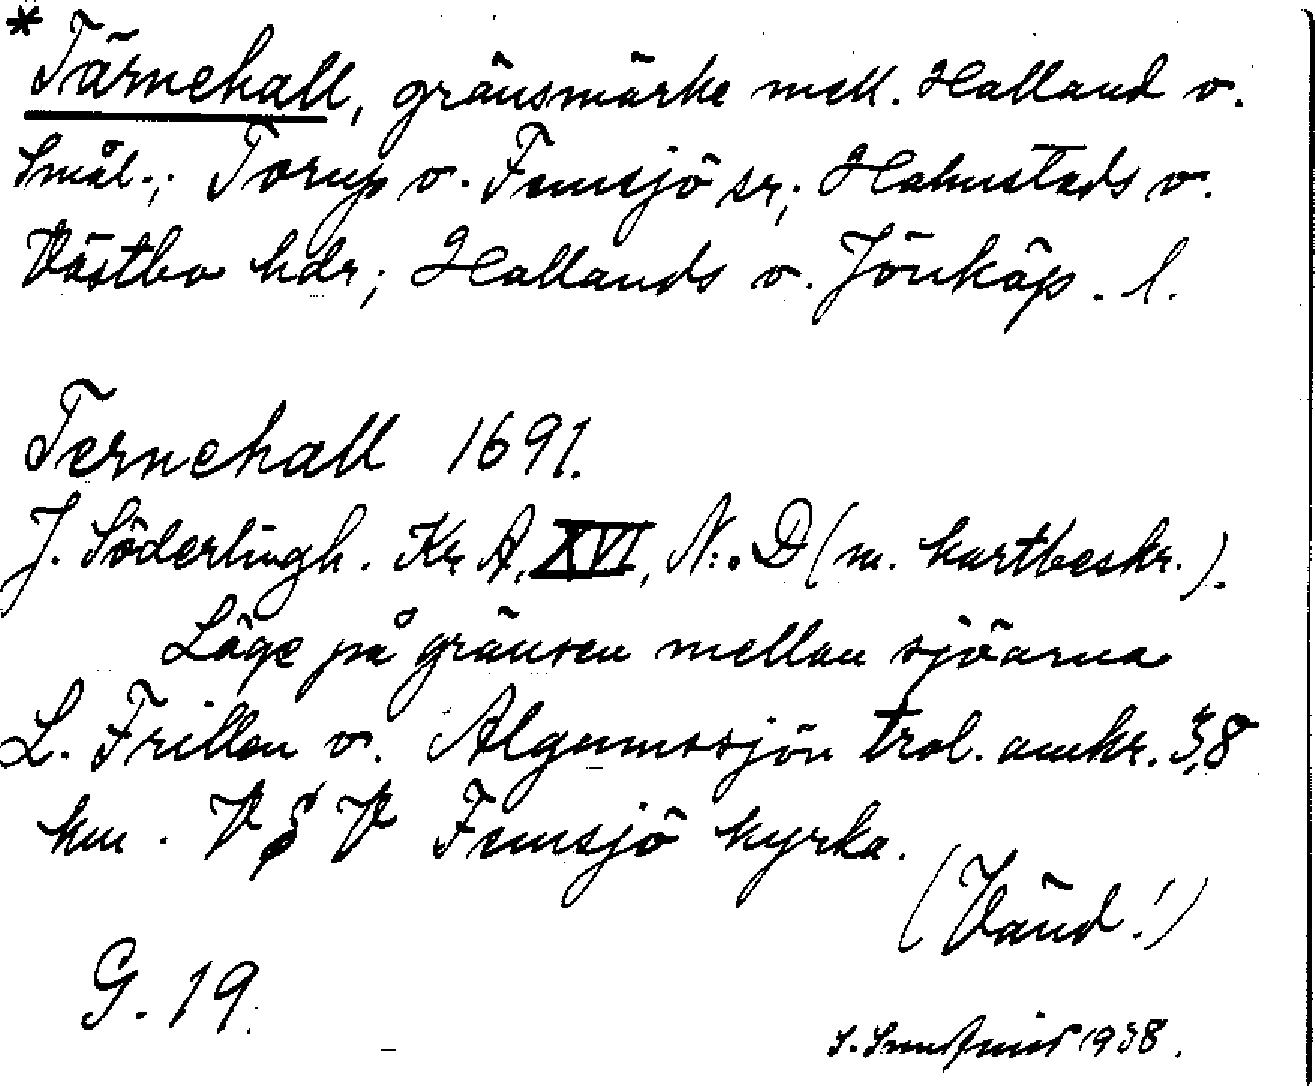 * Tärnehall, gränsmärke mell. Halland o.
Smål.; Torup o. Femsjö sr; Halmstads o.
Västbo hdr; Hallands o. Jönköp. l.
Ternehall 1691.
J. Söderlingh. Kr. A, XVI, N:o D (m. kartbeskr.).
Läge på gränsen mellan sjöarna
L. Frillen o. Algunnssjön trol. omkr. 3,8
km. V S V Femsjö kyrka.
(Vänd!)
G. 19.
S. 1938.